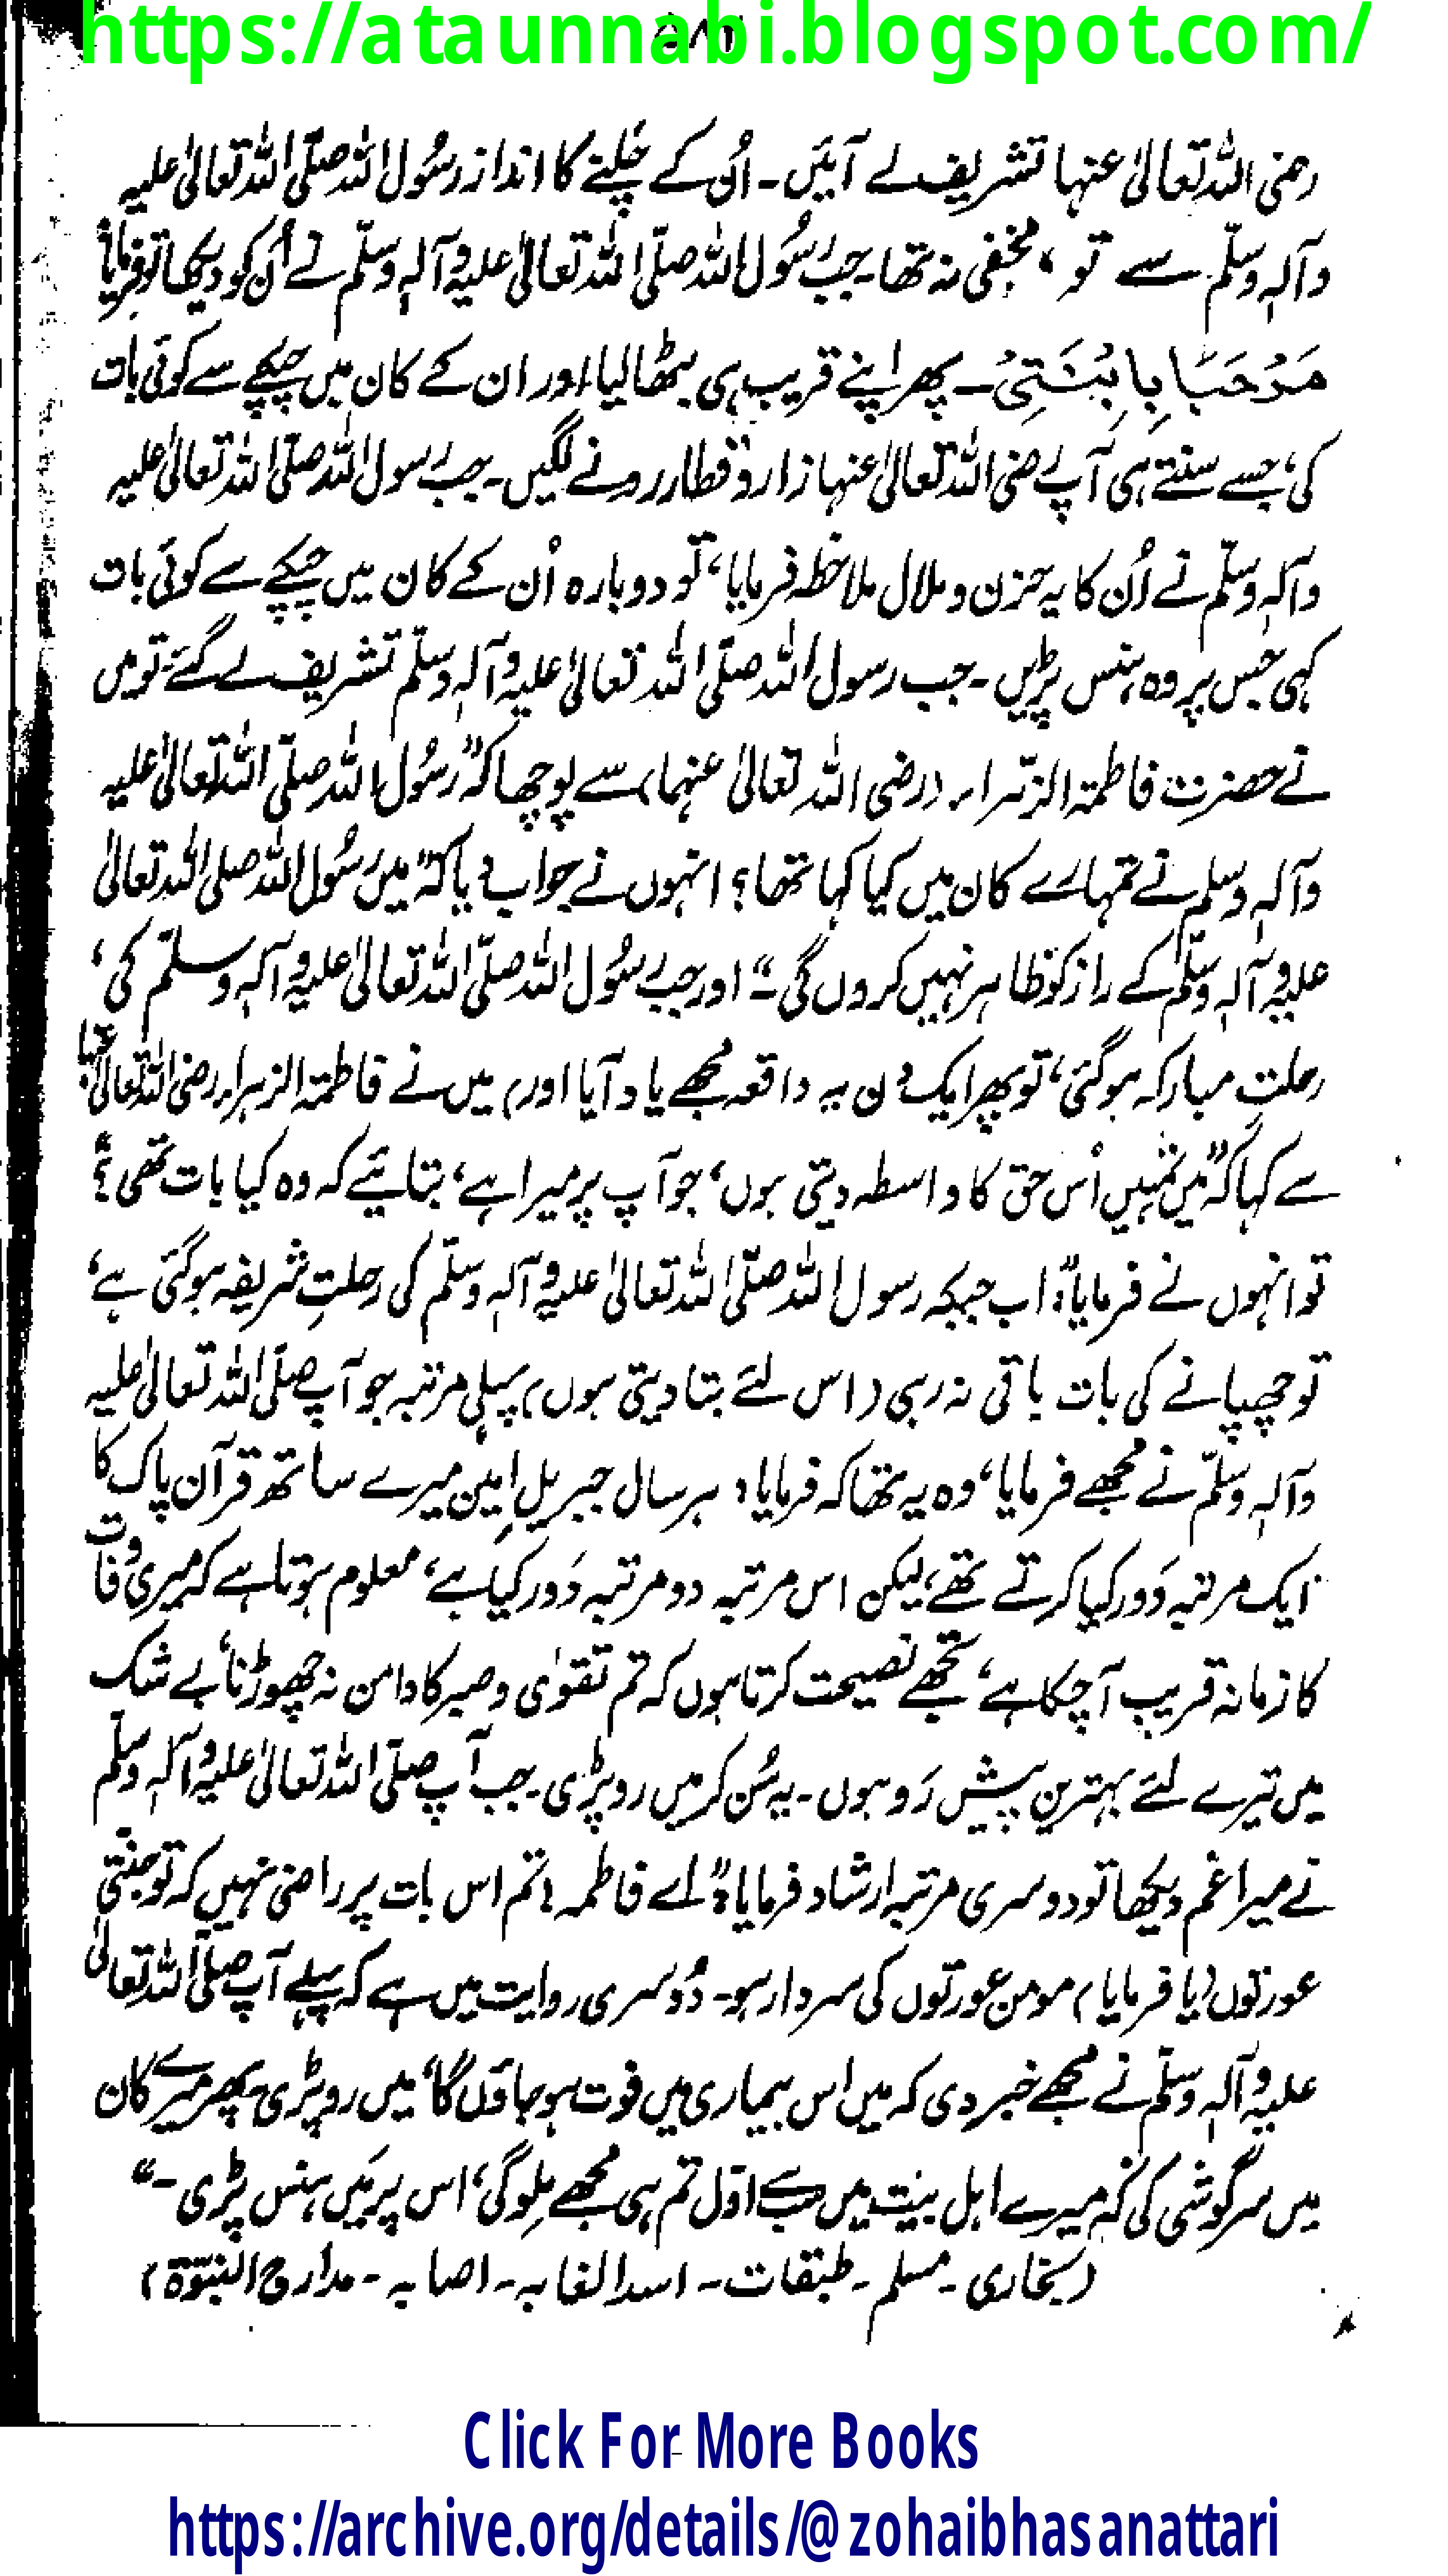 https://ataunnabi.blogspot.com/
رضی اللہ تعالیٰ عنہا تشریف لے آئیں۔ اُن کے چلنے کا انداز رسُول اللہ صلّی اللہ تعالیٰ علیہ
وآلہٖ وسلّم سے تو، مخفی نہ تھا۔ جب رسُول اللہ صلّی اللہ تعالیٰ علیہ وآلہٖ وسلّم نے اُن کو دیکھا تو فرمایا
مَرْحَبًا بِاِبْنَتِیْ۔ پھر اپنے قریب ہی بٹھا لیا اور ان کے کان میں چپکے سے کوئی بات
کی، جسے سنتے ہی آپ رضی اللہ تعالیٰ عنہا زار و قطار رونے لگیں۔ جب رسول اللہ صلّی اللہ تعالیٰ علیہ
وآلہٖ وسلّم نے اُن کا یہ حزن و ملال ملاحظہ فرمایا، تو دوبارہ اُن کے کان میں چپکے سے کوئی بات
کہی جس پر وہ ہنس پڑیں۔ جب رسول اللہ صلّی اللہ تعالیٰ علیہ وآلہٖ وسلّم تشریف لے گئے۔ تو میں
نے حضرت فاطمۃ الزہّرا۔ (رضی اللہ تعالیٰ عنہما) سے پوچھا کہ "رسُول اللہ صلّی اللہ تعالیٰ علیہ
وآلہٖ وسلم نے تمہارے کان میں کیا کہا تھا؟ انہوں نے جواب دیا کہ "میں رسُول اللہ صلی اللہ تعالیٰ
علیہ وآلہٖ وسلّم کے راز کو ظاہر نہیں کروں گی۔" اور جب رسُول اللہ صلّی اللہ تعالیٰ علیہ وآلہٖ وسلّم کی،
رحلتِ مبارکہ ہو گئی، تو پھر ایک دن یہ واقعہ مجھے یاد آیا اور) میں نے فاطمۃ الزہراء رضی اللہ تعالیٰ عنہا
سے کہا کہ "میں تمہیں اُس حق کا واسطہ دیتی ہوں، جو آپ پر میرا ہے، بتائیے کہ وہ کیا بات تھی؟"
تو انہوں نے فرمایا: "اب جبکہ رسول اللہ صلّی اللہ تعالیٰ علیہ وآلہٖ وسلّم کی رحلتِ شریفہ ہو گئی ہے،
تو چھپانے کی بات باقی نہ رہی (اس لئے بتا دیتی ہوں) پہلی مرتبہ جو آپ صلّی اللہ تعالیٰ علیہ
وآلہٖ وسلّم نے مجھے فرمایا، وہ یہ تھا کہ فرمایا: ہر سال جبریلِ امین میرے ساتھ قرآن پاک کا
ایک مرتبہ دَور کیا کرتے تھے، لیکن اس مرتبہ دو مرتبہ دَور کیا ہے، معلوم ہوتا ہے کہ میری وفات
کا زمانہ قریب آ چکا ہے، تجھے نصیحت کرتا ہوں کہ تم تقوٰی و صبر کا دامن نہ چھوڑنا، بے شک
میں تیرے لئے بہترین پیش رَو ہوں۔ یہ سُن کر میں رو پڑی۔ جب آپ صلّی اللہ تعالیٰ علیہ وآلہٖ وسلّم
نے میرا غم دیکھا تو دوسری مرتبہ ارشاد فرمایا: "اے فاطمہ! تم اس بات پر راضی نہیں کہ تو جنتی
عورتوں (یا فرمایا) مومن عورتوں کی سردار ہو۔ دُوسری روایت میں ہے کہ پہلے آپ صلّی اللہ تعالیٰ
علیہ وآلہٖ وسلّم نے مجھے خبر دی کہ میں اس بیماری میں فوت ہو جاؤں گا، میں رو پڑی، پھر میرے کان
میں سرگوشی کی کہ میرے اہل بیت میں سب سے اوّل تم ہی مجھے مِلو گی، اس پر مَیں ہنس پڑی۔"
(بخاری۔ مسلم۔ طبقات۔ اسد الغابہ۔ اصابہ۔ مدارج النبوّۃ)
Click For More Books
https://archive.org/details/@zohaibhasanattari